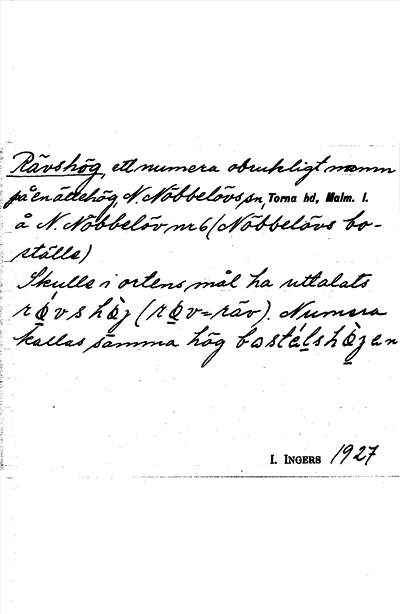 Rävshög, ett numera obrukligt namn
på en ättehög, N. Nöbbelövs sn, Torna hd, Malm. l.
å N. Nöbbelöv nr 6 (Nöbbelövs bo-
ställe)
Skulle i ortens mål ha uttalats
(röv = räv). Numera
kallas samma hög
I. INGERS 1927